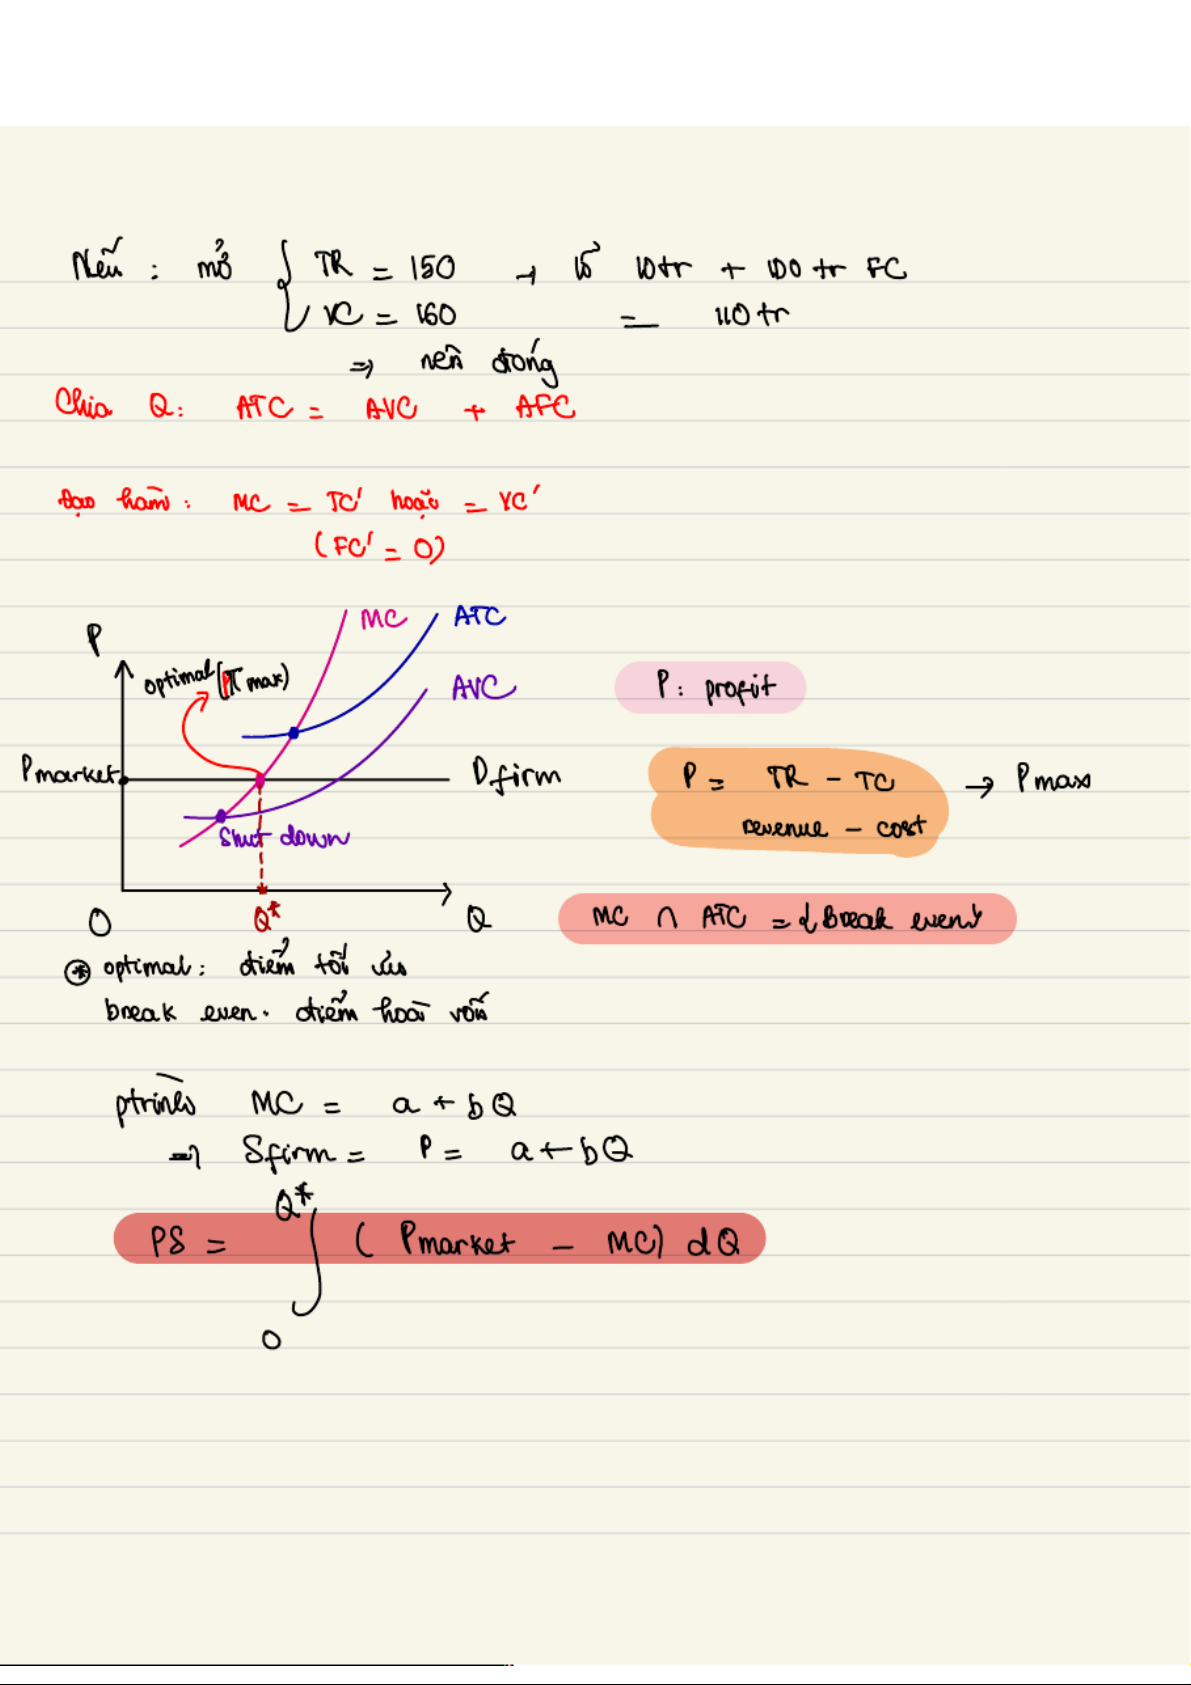 Nếu : mở { TR = 150 → lỗ 10tr + 100 tr FC
VC = 160 = 110 tr
=> nên đóng
Chia Q: ATC = AVC + AFC
Đạo hàm: MC = TC' hoặc = VC'
(FC' = 0)
MC ATC
P
optimal (π max)
AVC
P: profit
Pmarket
Dfirm
P = TR - TC → Pmax
revenue - cost
Shut down
O Q* Q
MC ∩ ATC = {Break even}
⊛ optimal: điểm tối ưu
break even. điểm hoà vốn
ptrình MC = a + bQ
=> Sfirm = P = a + bQ
Q*
PS = ∫ ( Pmarket - MC) dQ
0